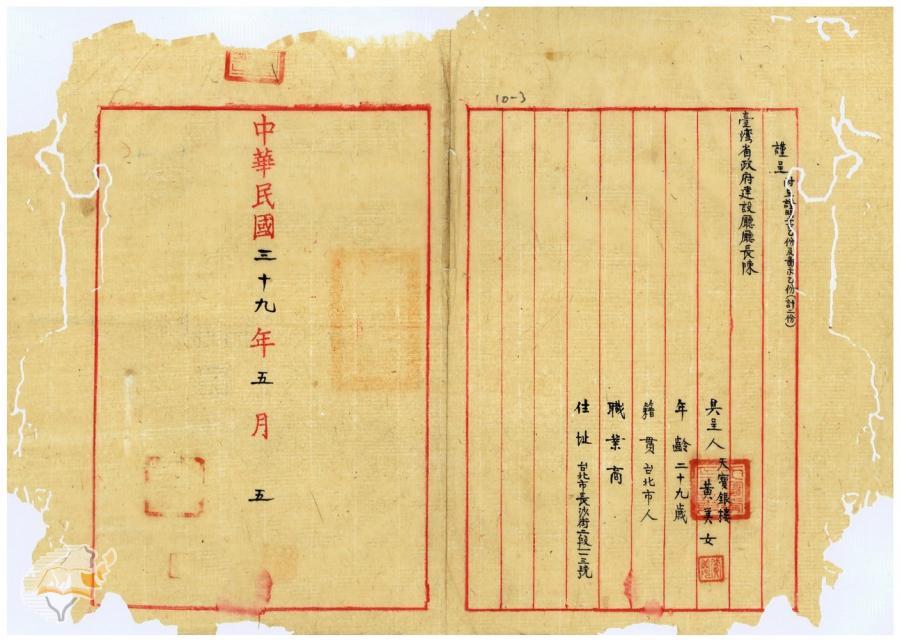 10-3
謹呈 付呈證明書乙份及圖示乙份(計二份)
臺灣省政府建設廳廳長陳
具呈人 天寶銀樓
黃美女
年齡 二十九歲
籍貫 台北市人
職業 商
住址 台北市長沙街二段一一三號
中華民國三十九年五月 五